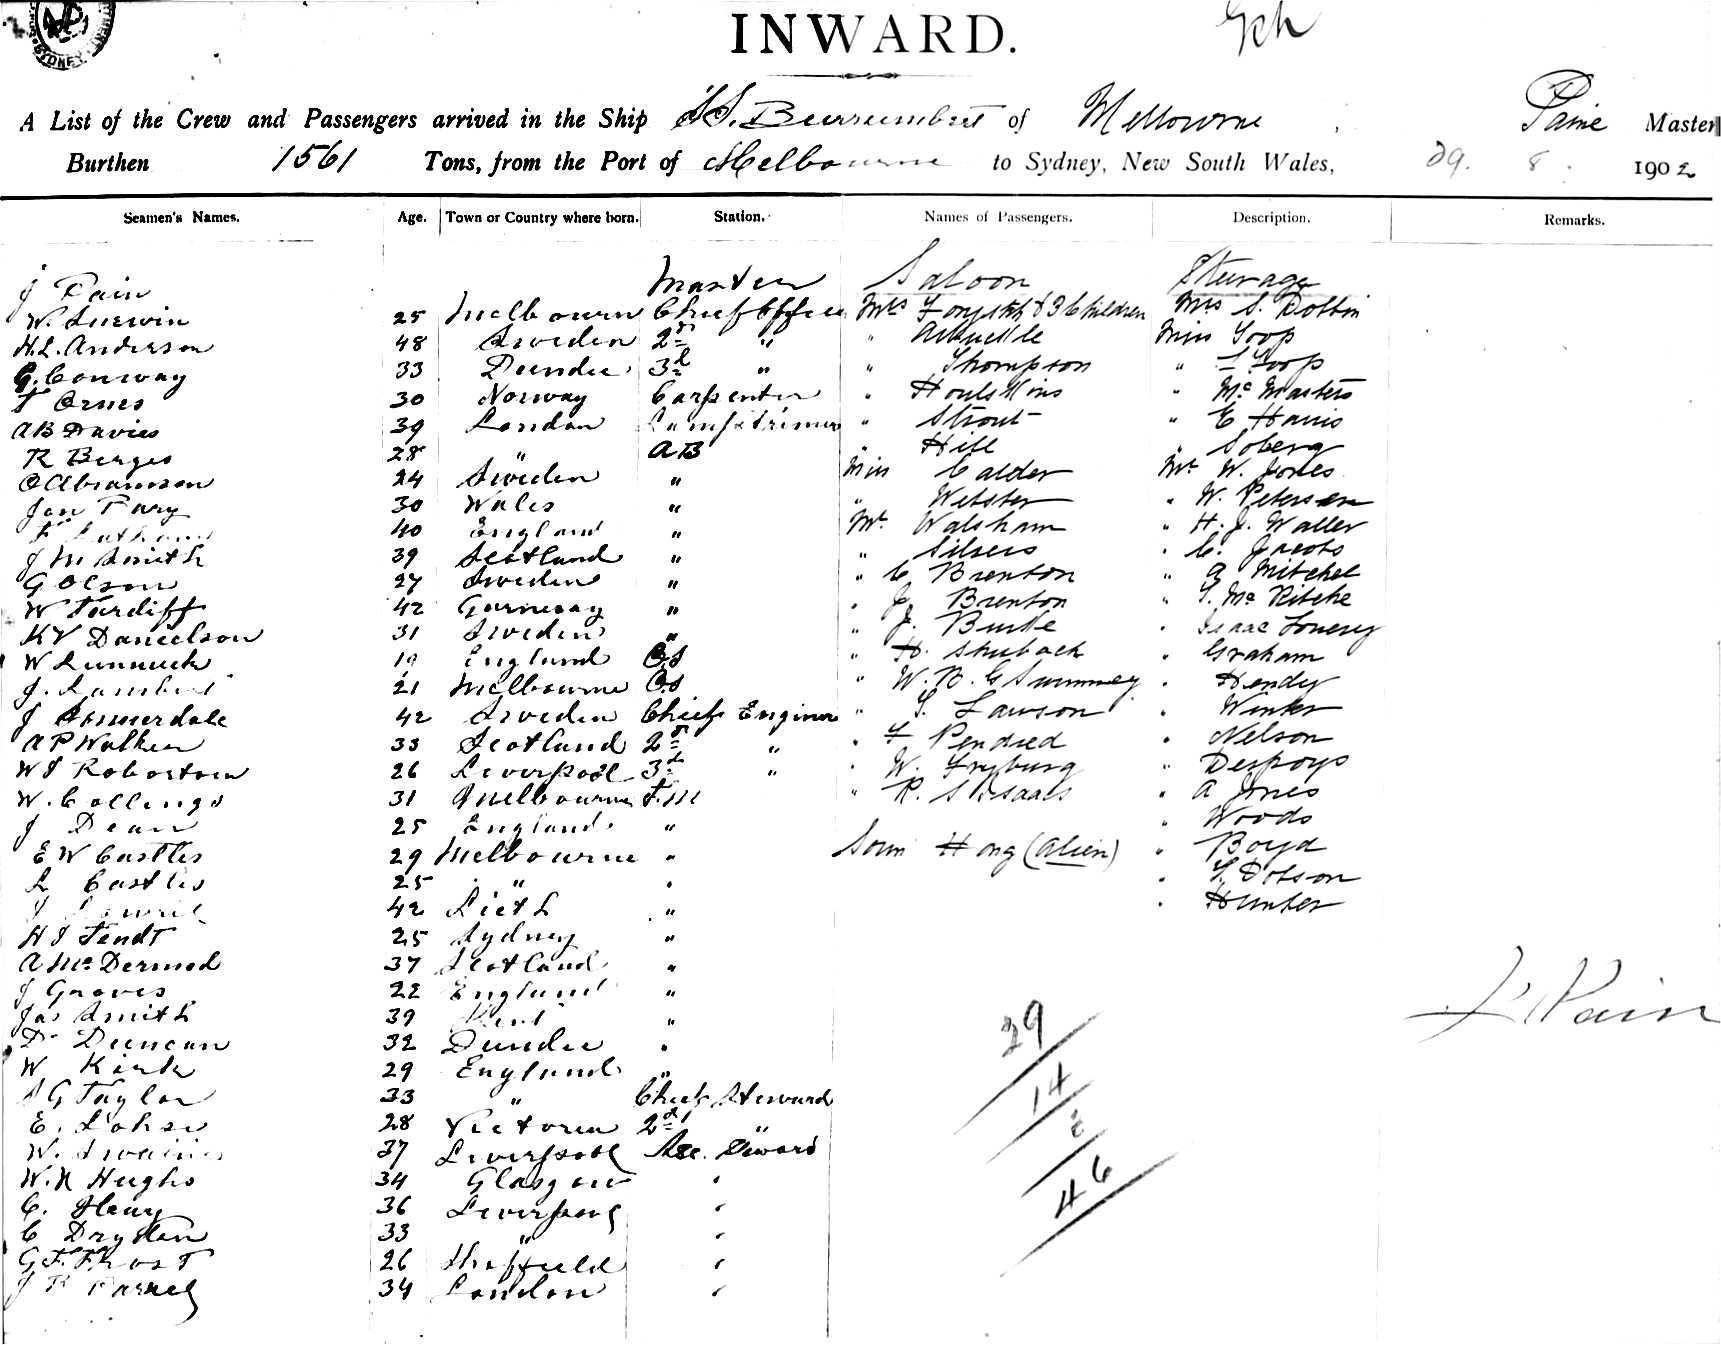 SYDNEY
INWARD.
A List of the Crew and Passengers arrived in the Ship SS. Burrumbeet of Melbourne , Paine Master
Burthen 1561 Tons, from the Port of Melbourne to Sydney, New South Wales, 29. 8. 1902
Seamen's Names. Age. Town or Country where born. Station. Names of Passengers. Description. Remarks.
J Pain Master Saloon Steerage
W. 25 Melbourn Chief Officer Mrs Forsyth & 3 Children Mrs S. Dobbin
H.L. Anderson 48 Sweden 2nd " " Arbuckle Miss Goop
G. Conway 33 Dundee 3d " " Thompson " Goop
Ornes 30 Norway Carpenter " Houlskins " Mc Masters
AB Davies 39 London Lamptrimer " Strout " E Harris
R Berges 28 " AB " Hill " Soberg
O Abramson 24 Sweden " Miss Calder Mr W. Jones
Jon Pary 30 Wales " " Webster " W. Petersen
40 England " Mr Walsham " H. J. Waller
J M Smith 39 Scotland " " Silvers " C. Jacobs
G Olson 27 Sweden " " C Brenton " A Mitchel
W Tardiff 42 Garnesay " " J. Brenton " S. Mc Ritchie
KV Danielson 31 Sweden " " J. Burke " Isaac Lowery
W 19 England OS " H. Shuback " Graham
J. Lambert 21 Melbourne OS " W. R. G Summey " Hendy
J Sonnerdale 42 Sweden Chief Enginer " S. Lawson " Winter
A P Walker 33 Scotland 2nd " " F Pendred " Nelson
W J Robertson 26 Liverpool 3d " " W. Fryburg " Despoys
W. Collings 31 Melbourne F.M " R. S Isaacs " A Jones
J Dean 25 England " " Woods
E W Castles 29 Melbourne " Soun Hong (alien) " Boyd
L Castles 25 " " " S. Dobson
J 42 Lieth " " Hunter
H J Fendt 25 Sydney "
A Mc Dermod 37 Scotland "
J Graves 22 England "
Jas Smith 39 Kent "
D. Duncan 32 Dundee "
W Kirk 29 England "
G Taylor 33 " Chief Steward
E. Lohse 28 Victoria 2nd "
W. Swaine 37 Liverpool Steward
W. R Hughs 34 Glasgow "
C. Henry 36 Liverpool "
C Dryden 33 " "
G. F. Frost 26 Sheffield "
J R Parnel 34 London "
J Pain
29
14
46